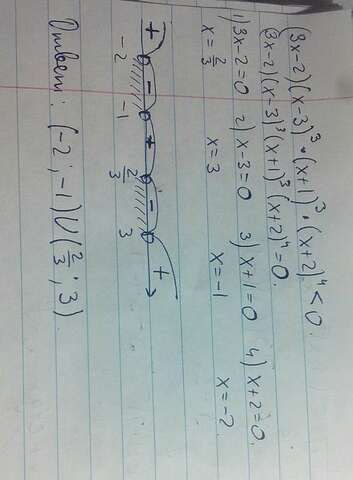 (3x-2)(x-3)³·(x+1)³·(x+2)⁴<0.
(3x-2)(x-3)³(x+1)³(x+2)⁴=0.
1) 3x-2=0 2) x-3=0 3) x+1=0 4) x+2=0.
x=2/3 x=3 x=-1 x=-2
+ - + - +
-2 -1 2/3 3
Ответ: (-2;-1)∪(2/3;3).